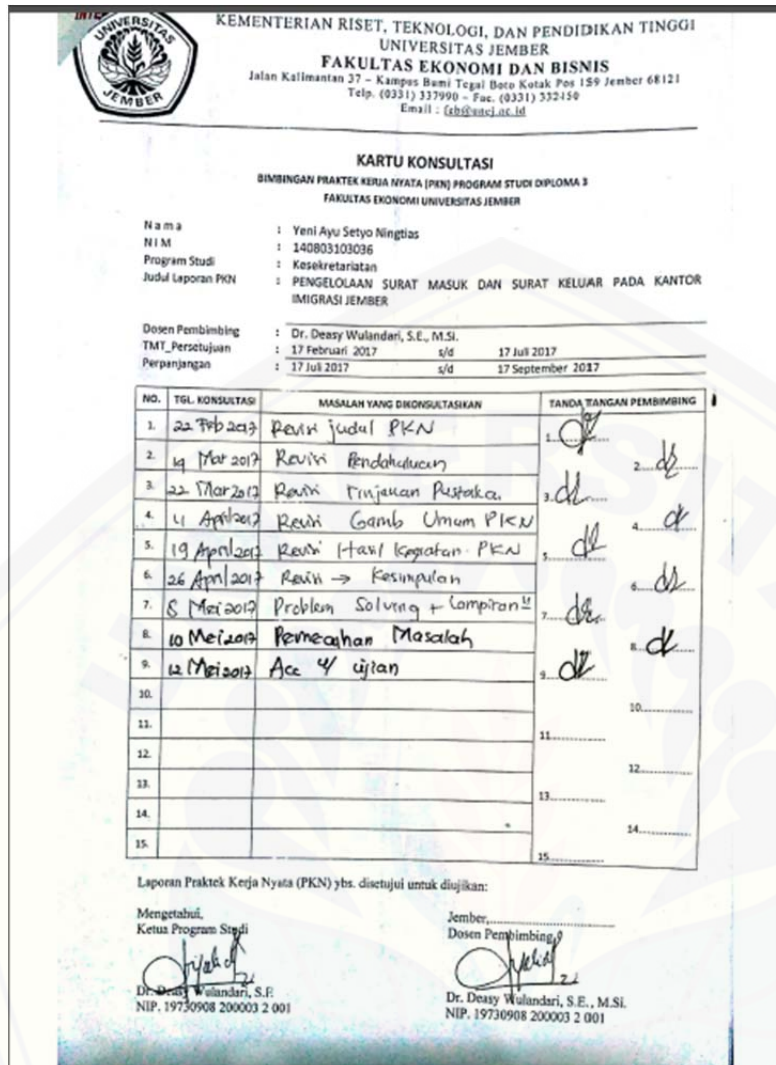 UNIVERSITAS
JEMBER
KEMENTERIAN RISET, TEKNOLOGI, DAN PENDIDIKAN TINGGI
UNIVERSITAS JEMBER
FAKULTAS EKONOMI DAN BISNIS
Jalan Kalimantan 37 – Kampus Bumi Tegal Boto Kotak Pos 159 Jember 68121
Telp. (0331) 337990 – Fac. (0331) 332150
Email : feb@unej.ac.id
KARTU KONSULTASI
BIMBINGAN PRAKTEK KERJA NYATA (PKN) PROGRAM STUDI DIPLOMA 3
FAKULTAS EKONOMI UNIVERSITAS JEMBER
Nama : Yeni Ayu Setyo Ningtias
NIM : 140803103036
Program Studi : Kesekretariatan
Judul Laporan PKN : PENGELOLAAN SURAT MASUK DAN SURAT KELUAR PADA KANTOR
IMIGRASI JEMBER
Dosen Pembimbing : Dr. Deasy Wulandari, S.E., M.Si.
TMT_Persetujuan : 17 Februari 2017 s/d 17 Juli 2017
Perpanjangan : 17 Juli 2017 s/d 17 September 2017
NO. TGL. KONSULTASI MASALAH YANG DIKONSULTASIKAN TANDA TANGAN PEMBIMBING
1. 22 Feb 2017 Revisi judul PKN 1.
2. Mar 2017 Revisi Pendahuluan 2.
3. 22 Mar 2017 Revisi Tinjauan Pustaka 3.
4. 4 April 2017 Revisi Gamb Umum PKN 4.
5. 19 April 2017 Revisi Hasil Kegiatan PKN 5.
6. 26 April 2017 Revisi → Kesimpulan 6.
7. 8 Mei 2017 Problem Solving + Lampiran² 7.
8. 10 Mei 2017 Pemecahan Masalah 8.
9. 12 Mei 2017 Acc u/ ujian 9.
10. 10.
11. 11.
12. 12.
13. 13.
14. 14.
15. 15.
Laporan Praktek Kerja Nyata (PKN) ybs. disetujui untuk diujikan:
Mengetahui, Jember,
Ketua Program Studi Dosen Pembimbing
Dr. Deasy Wulandari, S.E. Dr. Deasy Wulandari, S.E., M.Si.
NIP. 19730908 200003 2 001 NIP. 19730908 200003 2 001